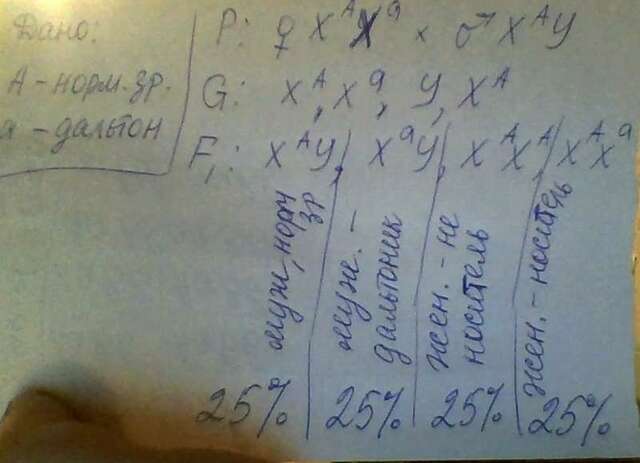 Дано:
А - норм. зр.
а - дальтон
P: ♀ X^A X^a × ♂ X^A У
G: X^A, X^a, У, X^A
F₁: X^A У, X^a У, X^A X^A, X^A X^a
муж, норм
зр
муж. -
дальтоник
жен. - не
носитель
жен. - носитель
25% 25% 25% 25%